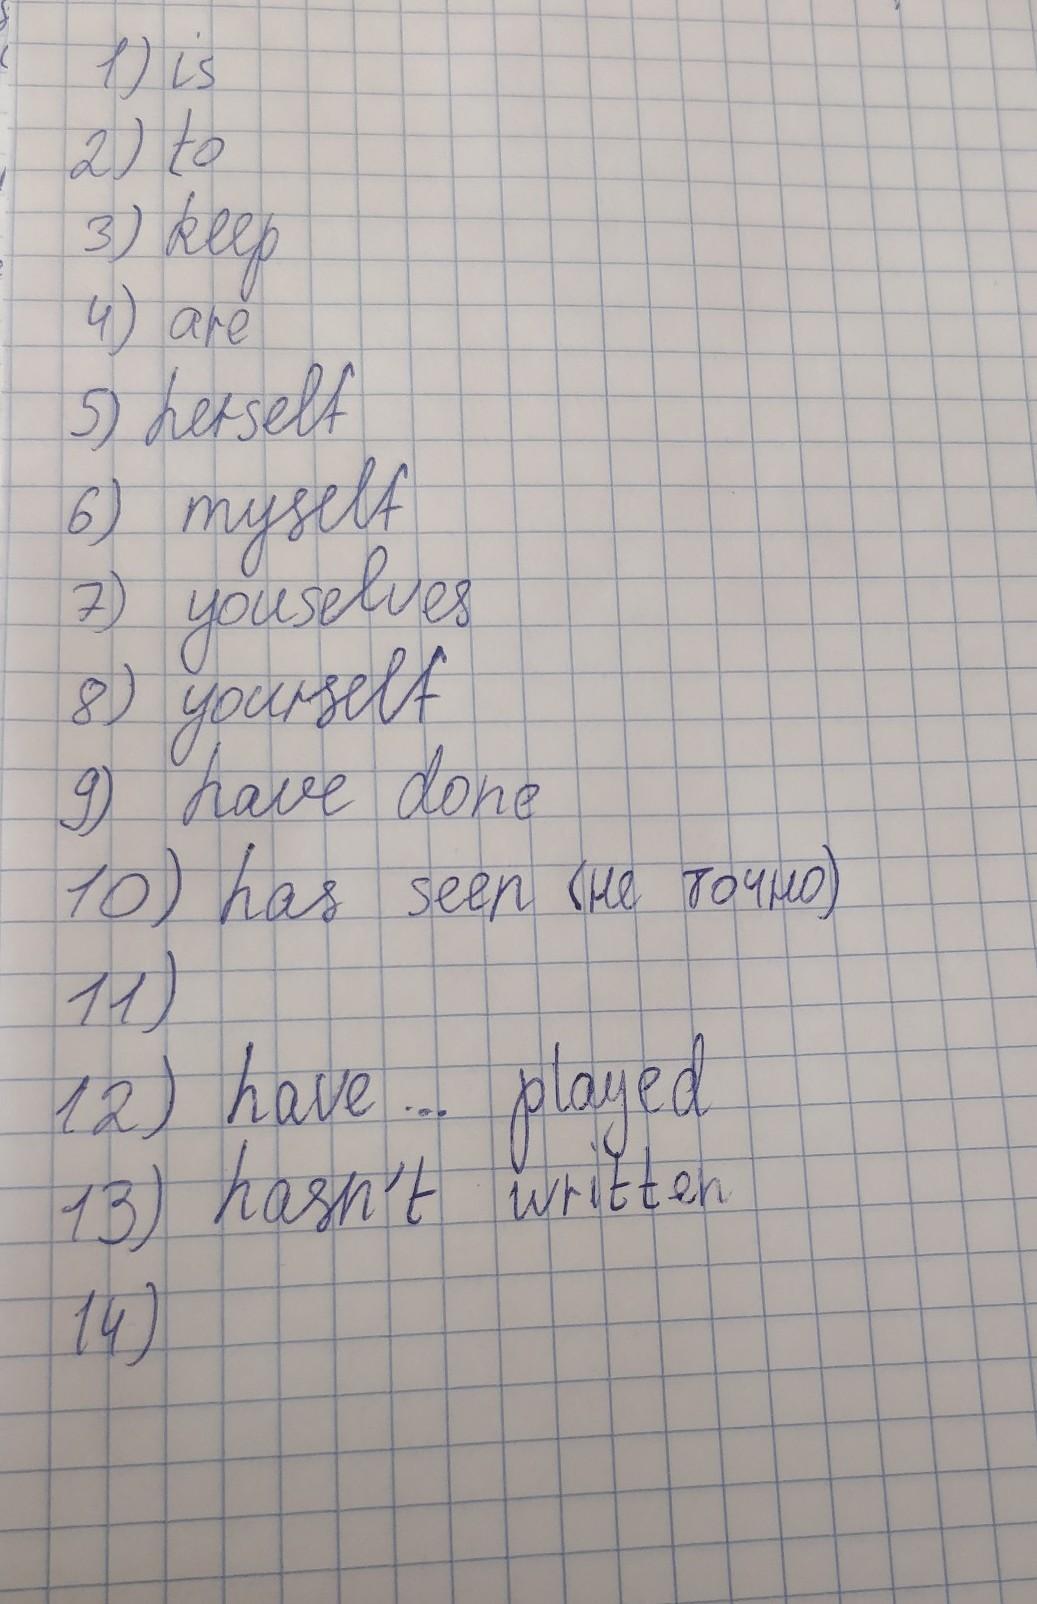 1) is
2) to
3) keep
4) are
5) herself
6) myself
7) youselves
8) yourself
9) have done
10) has seen (не точно)
11)
12) have ... played
13) hasn't written
14)